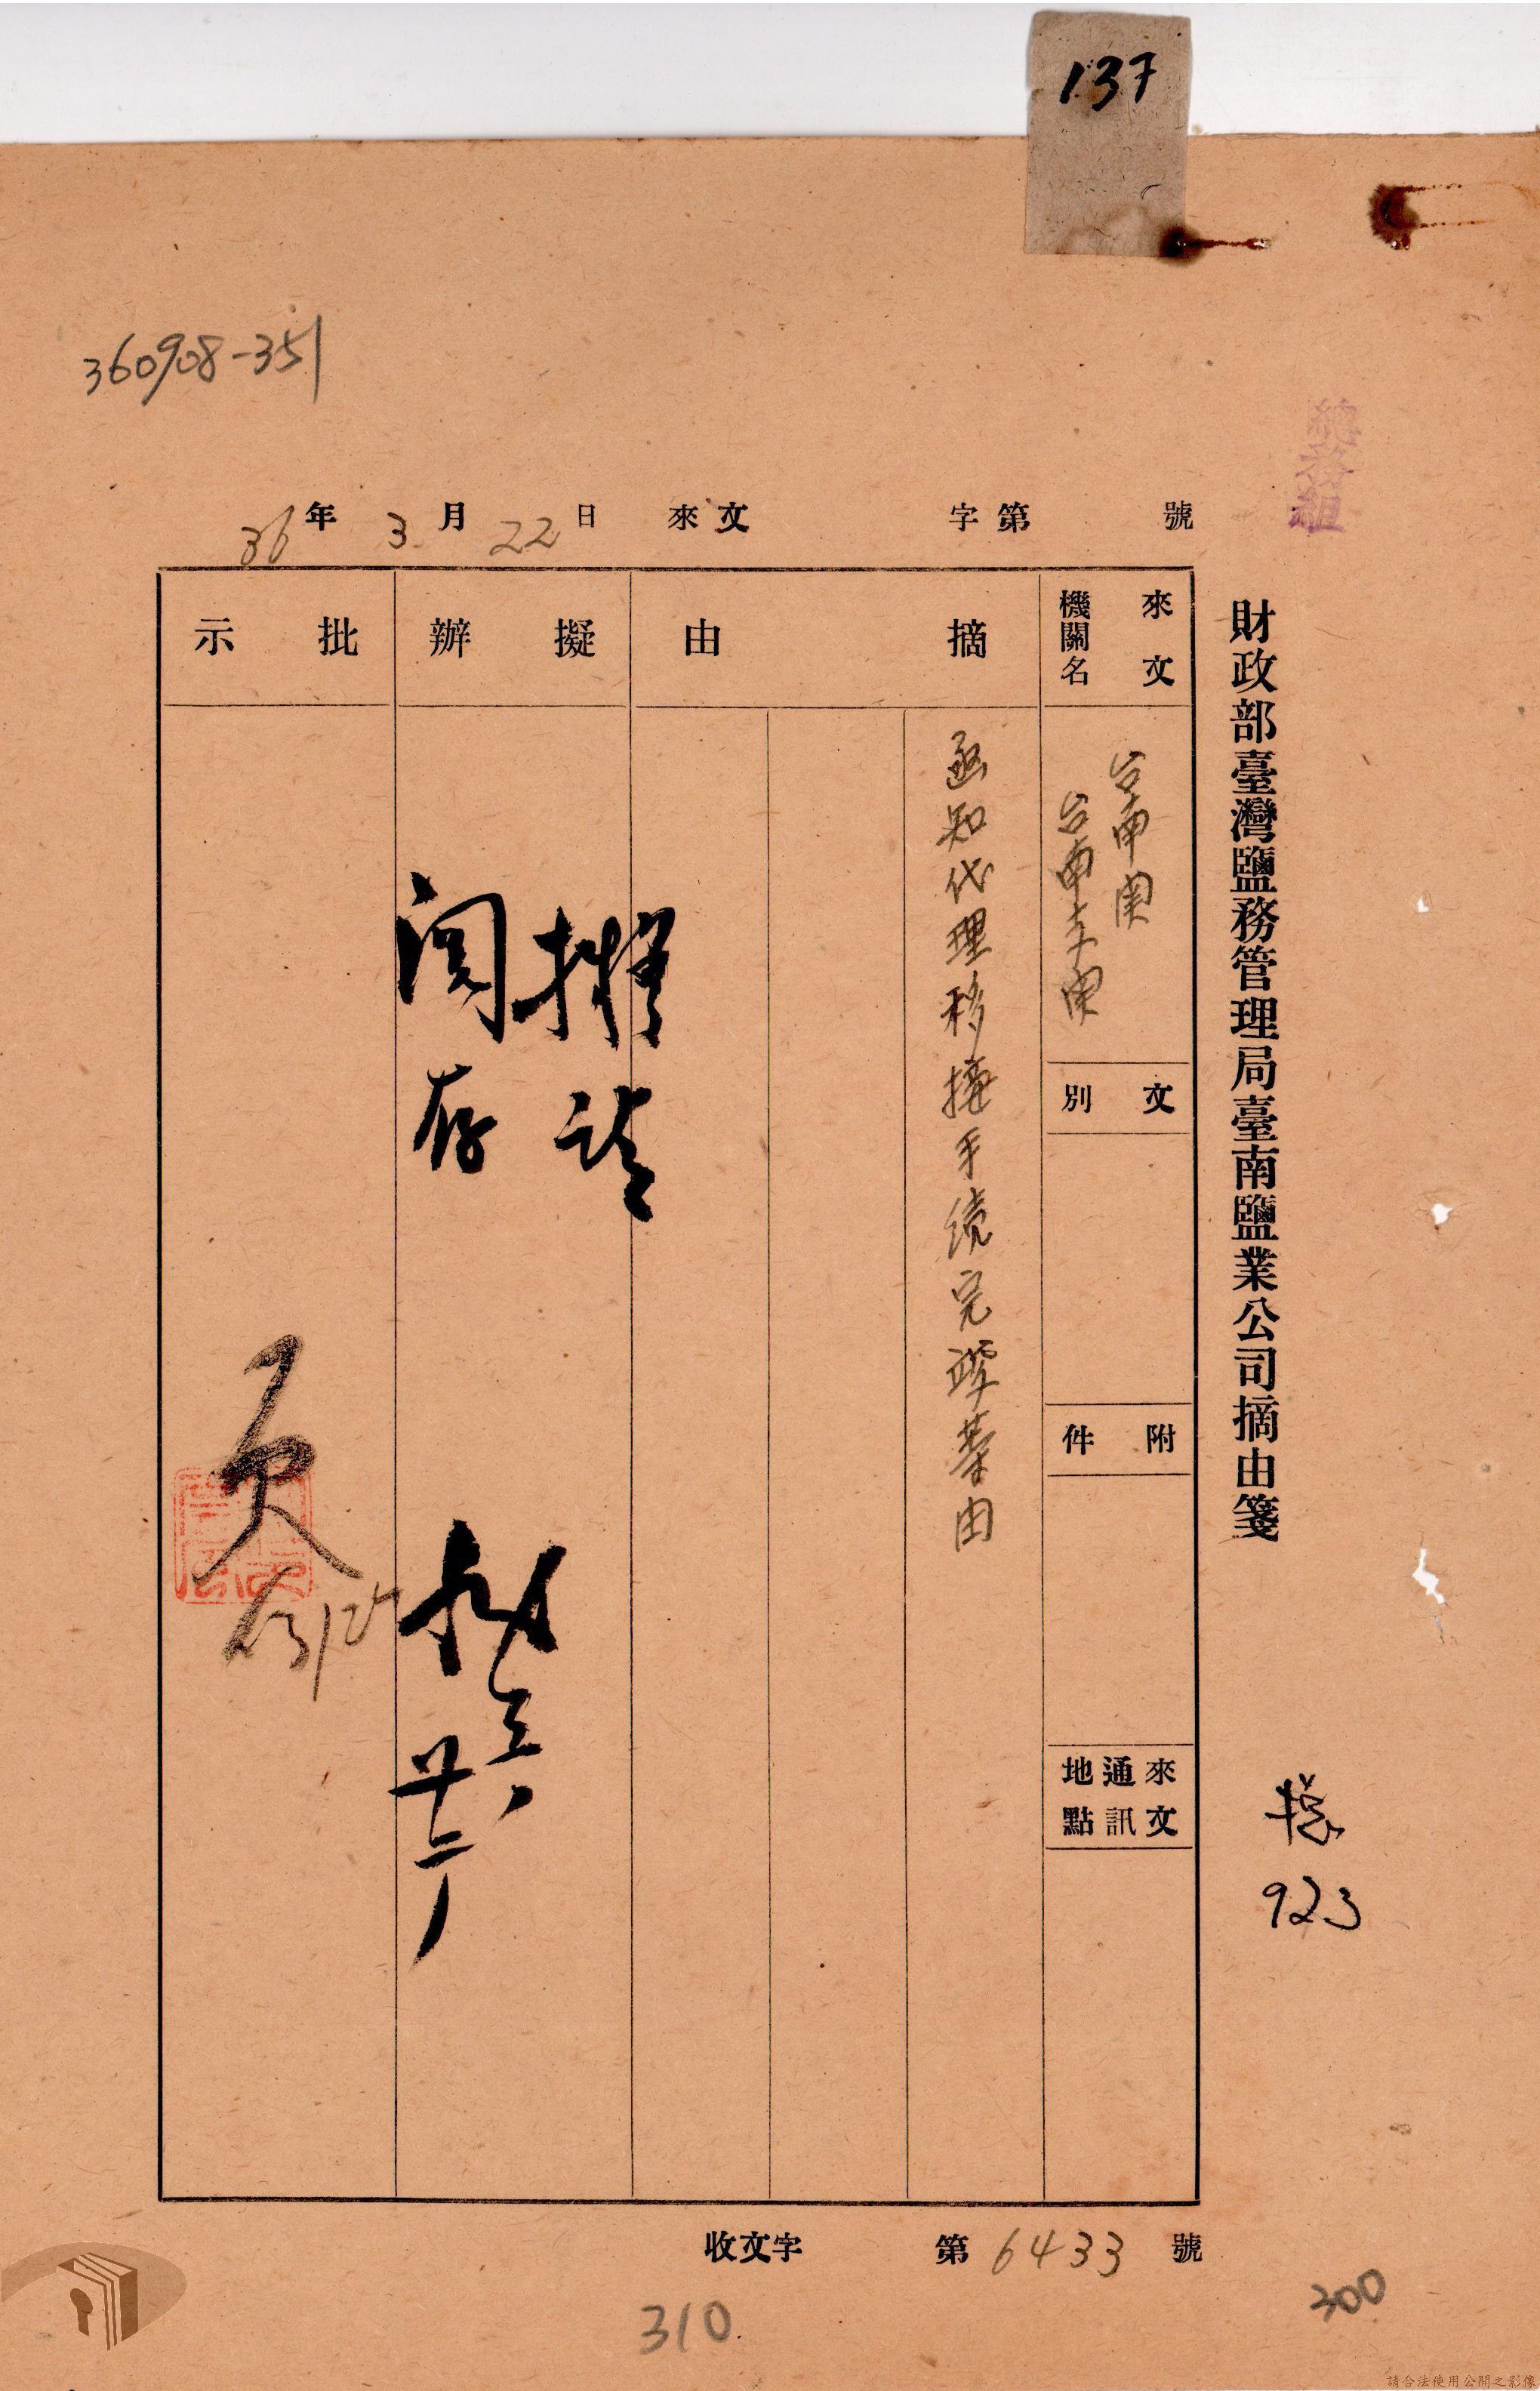 137
360908-351
總務組
36年3月22日來文 字第 號
財政部臺灣鹽務管理局臺南鹽業公司摘由箋
來文機關名
文別
附件
來文通訊地點
摘由
函知代理移接手續完竣等由
擬辦
擬請
閱存
三、
廿二
批示
923
收文字 第6433號
310
300
請合法使用公開之影像